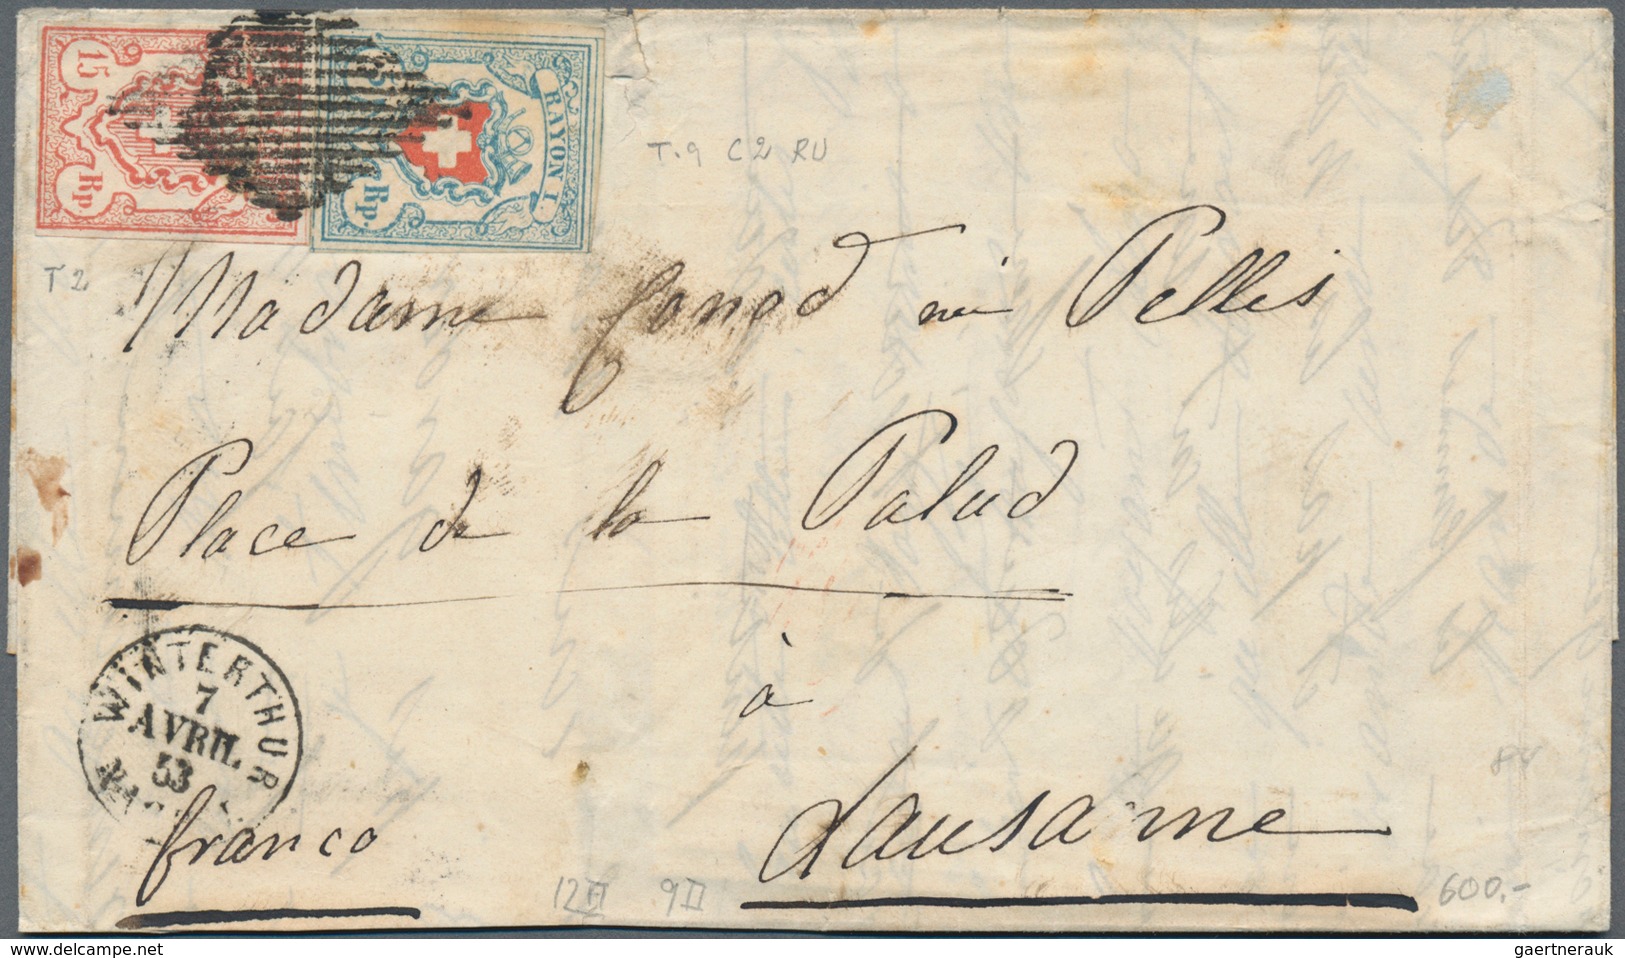 15
Rp
5
RAYON I.
Rp.
T.9 C2 RU
T2
Madame Jonod née Pellis
Place de la Palud
à
Lausanne
WINTERTHUR
7
AVRIL
53
franco
12II 9II
84
600.-
gaertnerauk